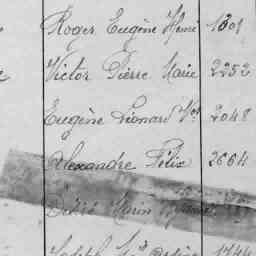 Roger Eugène Henri 1301
Victor Pierre Marie 2252
Eugène Léonard Vor 2048
Alexandre Félix 2664
Désiré Marin
Joseph 1744